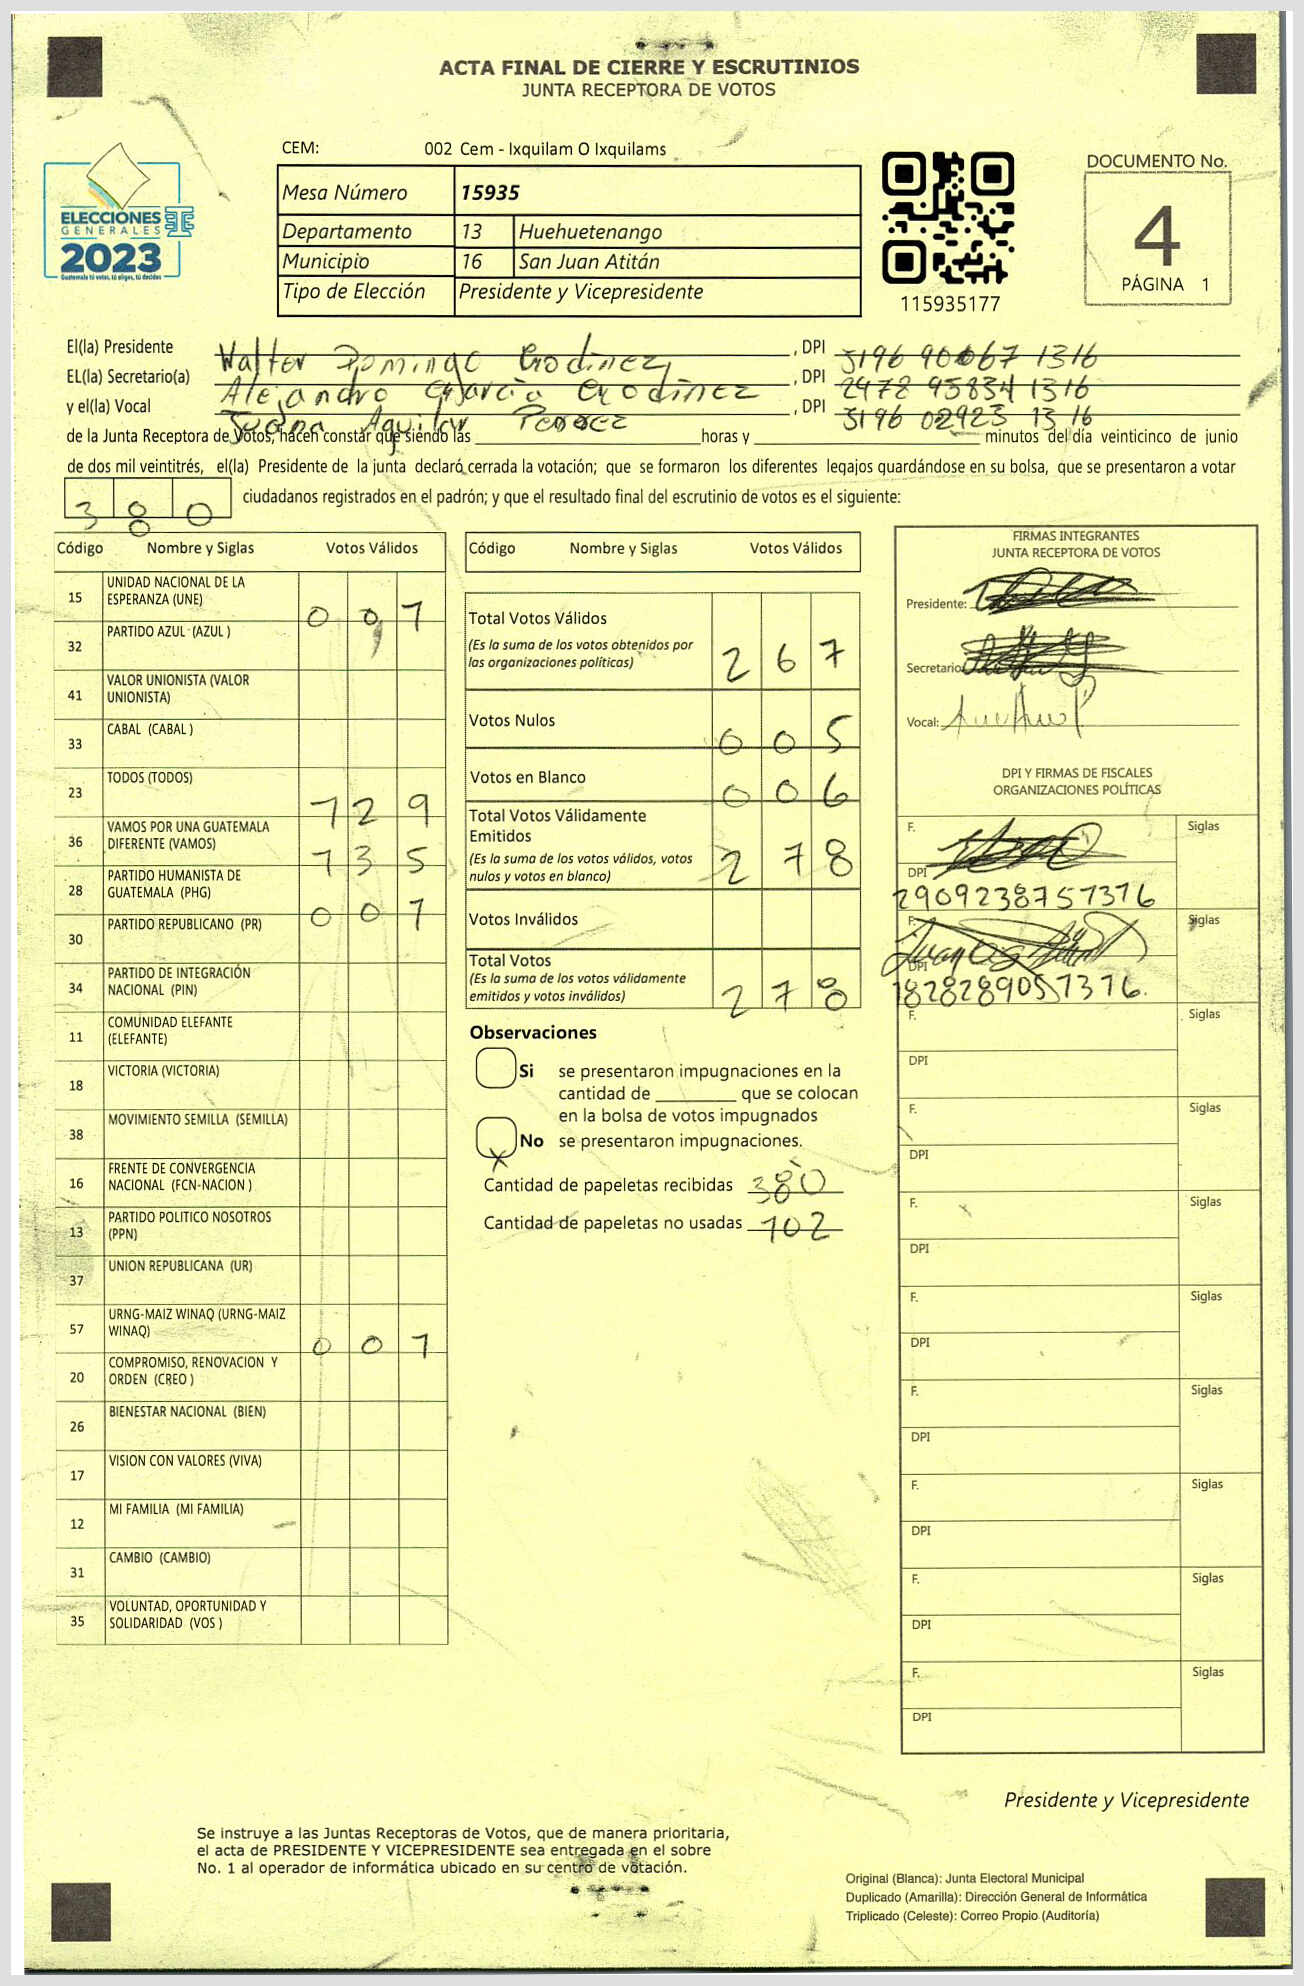 ACTA FINAL DE CIERRE Y ESCRUTINIOS
JUNTA RECEPTORA DE VOTOS
CEM: 002 Cem - Ixquilam O Ixquilams
ELECCIONES
GENERALES
2023
Guatemala tú votas, tú eliges, tú decides
Mesa Número 15935
Departamento 13 Huehuetenango
Municipio 16 San Juan Atitán
Tipo de Elección Presidente y Vicepresidente
115935177
DOCUMENTO No.
4
PÁGINA 1
El(la) Presidente Walter Domingo Godínez, DPI 3196 90067 1316
EL(la) Secretario(a) Alejandro García Godínez, DPI 2478 95834 1316
y el(la) Vocal Juana Aguilar Perez, DPI 3196 02923 1316
de la Junta Receptora de Votos, hacen constar que siendo las ____ horas y ____ minutos del día veinticinco de junio
de dos mil veintitrés, el(la) Presidente de la junta declaró cerrada la votación; que se formaron los diferentes legajos guardándose en su bolsa, que se presentaron a votar
380 ciudadanos registrados en el padrón; y que el resultado final del escrutinio de votos es el siguiente:
Código Nombre y Siglas Votos Válidos
15 UNIDAD NACIONAL DE LA ESPERANZA (UNE) 001
32 PARTIDO AZUL (AZUL )
41 VALOR UNIONISTA (VALOR UNIONISTA)
33 CABAL (CABAL )
23 TODOS (TODOS) 129
36 VAMOS POR UNA GUATEMALA DIFERENTE (VAMOS) 135
28 PARTIDO HUMANISTA DE GUATEMALA (PHG) 001
30 PARTIDO REPUBLICANO (PR)
34 PARTIDO DE INTEGRACIÓN NACIONAL (PIN)
11 COMUNIDAD ELEFANTE (ELEFANTE)
18 VICTORIA (VICTORIA)
38 MOVIMIENTO SEMILLA (SEMILLA)
16 FRENTE DE CONVERGENCIA NACIONAL (FCN-NACION )
13 PARTIDO POLITICO NOSOTROS (PPN)
37 UNION REPUBLICANA (UR)
57 URNG-MAIZ WINAQ (URNG-MAIZ WINAQ) 001
20 COMPROMISO, RENOVACION Y ORDEN (CREO )
26 BIENESTAR NACIONAL (BIEN)
17 VISION CON VALORES (VIVA)
12 MI FAMILIA (MI FAMILIA)
31 CAMBIO (CAMBIO)
35 VOLUNTAD, OPORTUNIDAD Y SOLIDARIDAD (VOS )
Código Nombre y Siglas Votos Válidos
Total Votos Válidos 267
(Es la suma de los votos obtenidos por
las organizaciones políticas)
Votos Nulos 005
Votos en Blanco 006
Total Votos Válidamente
Emitidos 278
(Es la suma de los votos válidos, votos
nulos y votos en blanco)
Votos Inválidos
Total Votos 278
(Es la suma de los votos válidamente
emitidos y votos inválidos)
Observaciones
Si se presentaron impugnaciones en la
cantidad de ____ que se colocan
en la bolsa de votos impugnados
X No se presentaron impugnaciones.
Cantidad de papeletas recibidas 380
Cantidad de papeletas no usadas 102
FIRMAS INTEGRANTES
JUNTA RECEPTORA DE VOTOS
Presidente:
Secretario
Vocal:
DPI Y FIRMAS DE FISCALES
ORGANIZACIONES POLÍTICAS
F. Siglas
DPI
2909238751316
F. Siglas
DPI
1828289051316.
F. Siglas
DPI
F. Siglas
DPI
F. Siglas
DPI
F. Siglas
DPI
F. Siglas
DPI
F. Siglas
DPI
F. Siglas
DPI
F. Siglas
DPI
Presidente y Vicepresidente
Se instruye a las Juntas Receptoras de Votos, que de manera prioritaria,
el acta de PRESIDENTE Y VICEPRESIDENTE sea entregada en el sobre
No. 1 al operador de informática ubicado en su centro de votación.
Original (Blanca): Junta Electoral Municipal
Duplicado (Amarilla): Dirección General de Informática
Triplicado (Celeste): Correo Propio (Auditoría)